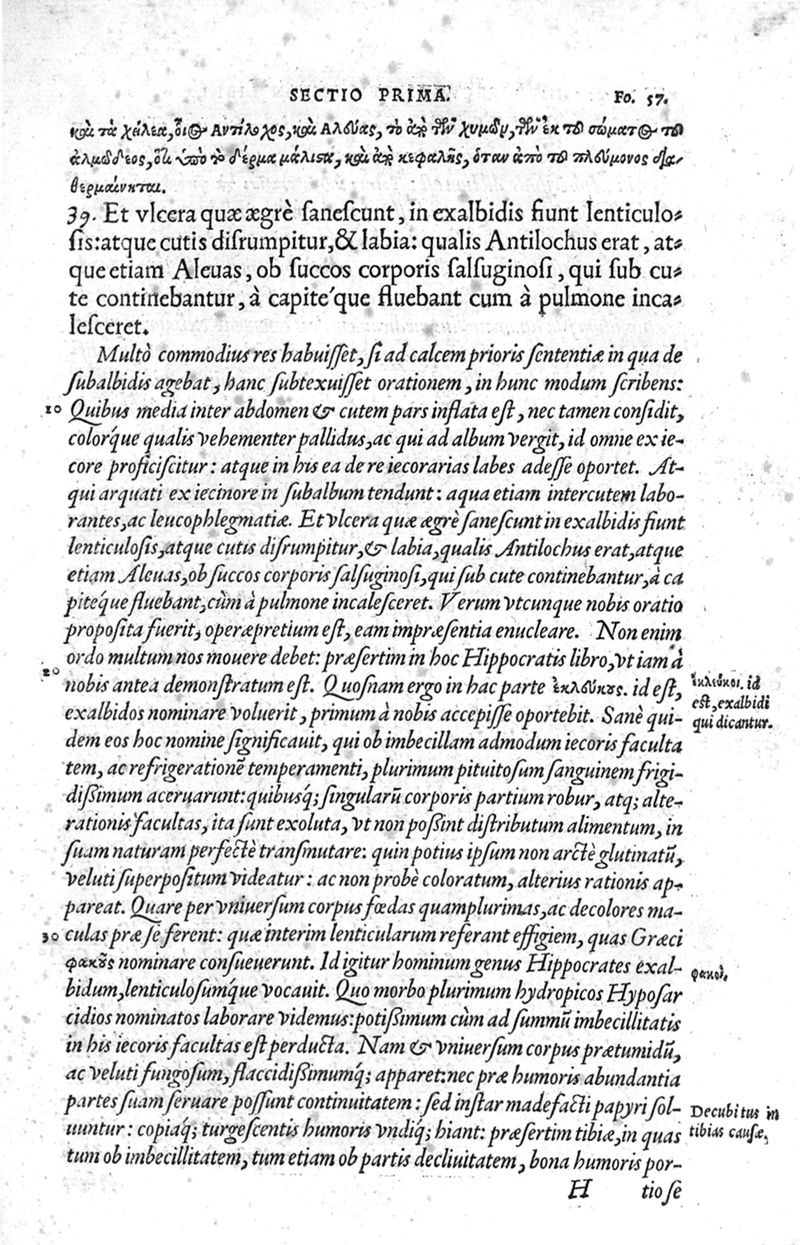 SECTIO PRIMA. Fo. 57.
καὶ τὰ χείλεα, οἷος Αντίλοχος, καὶ Αλεύας, τὸ ἀπὸ τῶν χυμῶν, τῶν ἐκ τοῦ σώματος τοῦ
ἁλμώδεος, ὅτι ὑπὸ τὸ δέρμα μάλιστα, καὶ ἀπὸ κεφαλῆς, ὅταν ἀπὸ τοῦ πλεύμονος δια-
θερμαίνηται.
39. Et vlcera quæ ægrè ſaneſcunt, in exalbidis fiunt lenticulo-
ſis: atque cutis diſrumpitur, & labia: qualis Antilochus erat, at-
que etiam Aleuas, ob ſuccos corporis ſalſuginoſi, qui ſub cu-
te continebantur, à capite´que fluebant cum à pulmone inca-
leſceret.
Multò commodius res habuiſſet, ſi ad calcem prioris ſententiæ in qua de
ſubalbidis agebat, hanc ſubtexuiſſet orationem, in hunc modum ſcribens:
10 Quibus media inter abdomen & cutem pars inflata eſt, nec tamen conſidit,
colorq́ue qualis vehementer pallidus, ac qui ad album vergit, id omne ex ie-
core proficiſcitur: atque in his ea de re iecorarias labes adeſſe oportet. At-
qui arquati ex iecinore in ſubalbum tendunt: aqua etiam intercutem labo-
rantes, ac leucophlegmatiæ. Et vlcera quæ ægrè ſaneſcunt in exalbidis fiunt
lenticuloſis, atque cutis diſrumpitur, & labia, qualis Antilochus erat, atque
etiam Aleuas, ob ſuccos corporis ſalſuginoſi, qui ſub cute continebantur, à ca
piteq́ue fluebant, cùm à pulmone incaleſceret. Verum vtcunque nobis oratio
propoſita fuerit, operæpretium eſt, eam impræſentia enucleare. Non enim
ordo multum nos mouere debet: præſertim in hoc Hippocratis libro, vt iam à
20 nobis antea demonſtratum eſt. Quoſnam ergo in hac parte ἐκλεύκους. id eſt,
ἔκλευκοι. id
eſt, exalbidi
qui dicantur.
exalbidos nominare voluerit, primum à nobis accepiſſe oportebit. Sanè qui-
dem eos hoc nomine ſignificauit, qui ob imbecillam admodum iecoris faculta
tem, ac refrigerationē temperamenti, plurimum pituitoſum ſanguinem frigi-
diſsimum aceruarunt: quibuſq́; ſingularū corporis partium robur, atq; alte-
rationis facultas, ita ſunt exoluta, vt non poſsint diſtributum alimentum, in
ſuam naturam perfectè tranſmutare: quin potius ipſum non arctè glutinatū,
veluti ſuperpoſitum videatur: ac non probè coloratum, alterius rationis ap-
pareat. Quare per vniuerſum corpus fœdas quamplurimas, ac decolores ma-
30 culas præ ſe ferent: quæ interim lenticularum referant effigiem, quas Græci
φακοὺς nominare conſueuerunt. Id igitur hominum genus Hippocrates exal-
φακοί.
bidum, lenticuloſumq́ue vocauit. Quo morbo plurimum hydropicos Hypoſar
cidios nominatos laborare videmus: potiſsimum cùm ad ſummū imbecillitatis
in his iecoris facultas eſt perducta. Nam & vniuerſum corpus prætumidū,
ac veluti fungoſum, flaccidiſsimumq́; apparet: nec præ humoris abundantia
partes ſuam ſeruare poſſunt continuitatem: ſed inſtar madefacti papyri ſol-
Decubitus in
tibias cauſæ,
uuntur: copiaq́; turgeſcentis humoris vndiq; hiant: præſertim tibiæ, in quas
tum ob imbecillitatem, tum etiam ob partis decliuitatem, bona humoris por-
H tio ſe